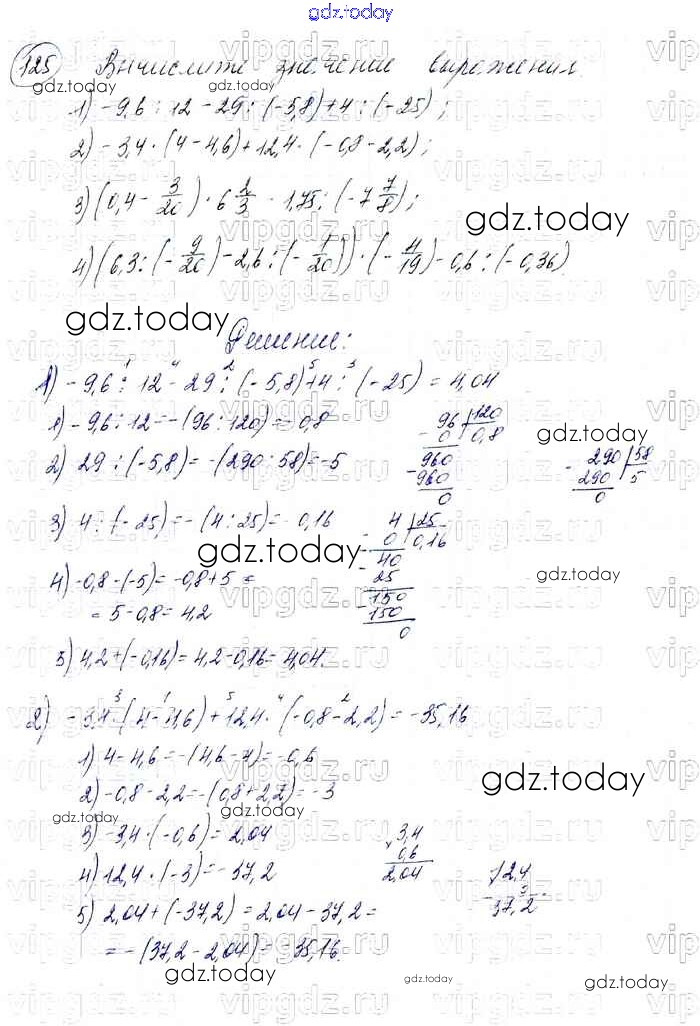 gdz.today
125 Вычислите значение выражения
1) -9,6 : 12 - 29 : (-5,8) + 4 : (-25);
2) -3,4 · (4 - 4,6) + 12,4 · (-0,8 - 2,2);
3) (0,4 - 3/20) · 6 2/3 - 1,75 : (-7 7/8);
4) (6,3 : (-9/20) - 2,6 : (-1/20)) · (-4/19) - 0,6 : (-0,36)
gdz.today
gdz.today
Решение:
1) -9,6 : 12 - 29 : (-5,8) + 4 : (-25) = 4,04
1) -9,6 : 12 = -(96 : 120) = -0,8
96 120
0 0,8
960
960
0
gdz.today
2) 29 : (-5,8) = -(290 : 58) = -5
290 58
290 5
0
3) 4 : (-25) = -(4 : 25) = -0,16
4 25
0 0,16
40
25
150
150
0
gdz.today
gdz.today
4) -0,8 - (-5) = -0,8 + 5 =
= 5 - 0,8 = 4,2
5) 4,2 + (-0,16) = 4,2 - 0,16 = 4,04.
2) -3,4 · (4 - 4,6) + 12,4 · (-0,8 - 2,2) = -35,16
1) 4 - 4,6 = -(4,6 - 4) = -0,6
2) -0,8 - 2,2 = -(0,8 + 2,2) = -3
gdz.today
gdz.today
3) -3,4 · (-0,6) = 2,04
3,4
0,6
2,04
4) 12,4 · (-3) = -37,2
12,4
3
37,2
5) 2,04 + (-37,2) = 2,04 - 37,2 =
= -(37,2 - 2,04) = -35,16.
gdz.today
gdz.today
gdz.today